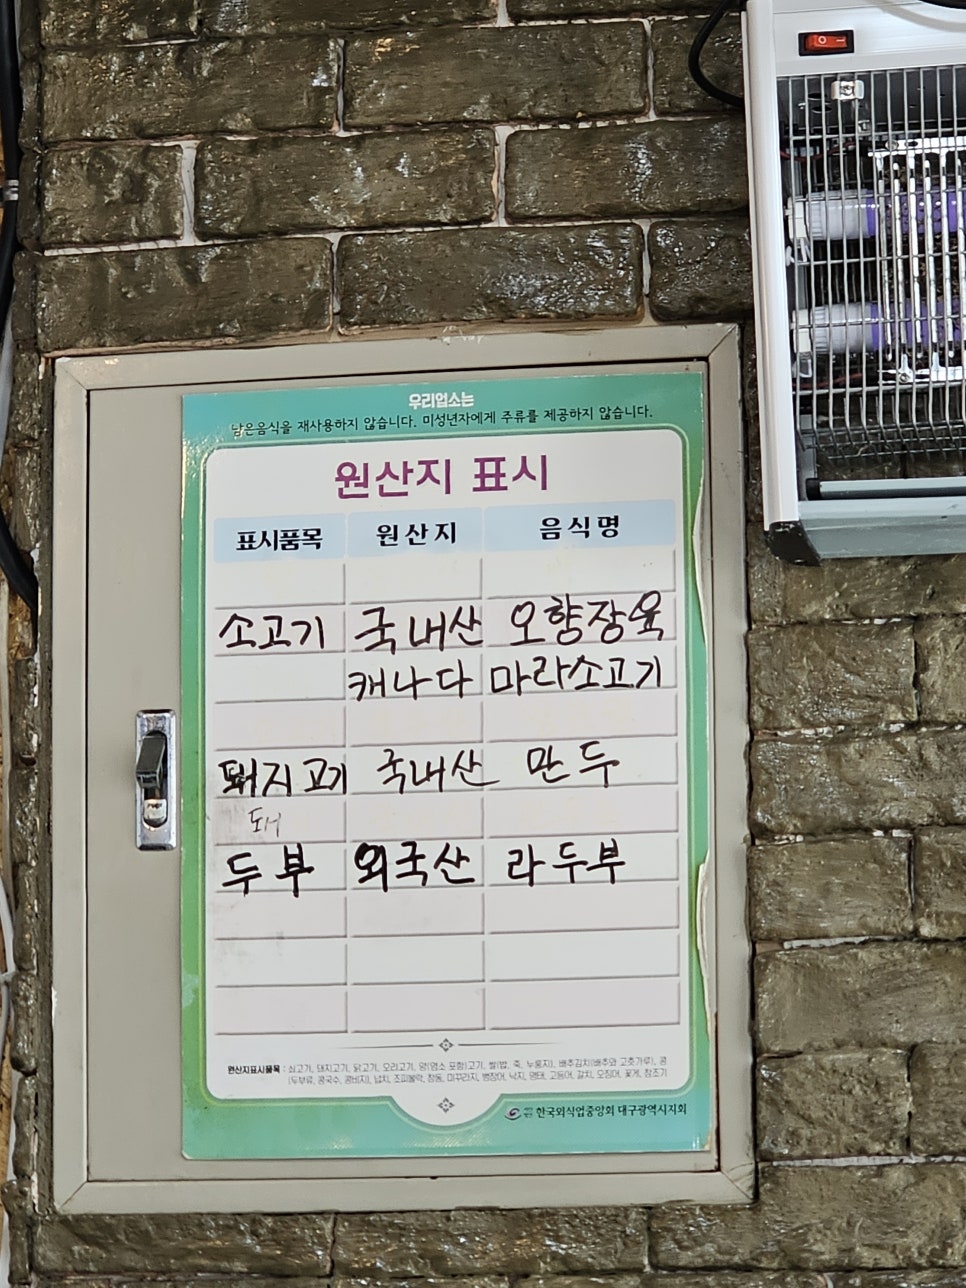 우리업소는
남은음식을 재사용하지 않습니다. 미성년자에게 주류를 제공하지 않습니다.
원산지 표시
표시품목 원산지 음식명
소고기 국내산 오향장육
캐나다 마라소고기
돼지고기 국내산 만두
돼
두부 외국산 라두부
원산지표시품목 : 쇠고기, 돼지고기, 닭고기, 오리고기, 양(염소 포함)고기, 쌀(밥, 죽, 누룽지), 배추김치(배추와 고춧가루), 콩
(두부류, 콩국수, 콩비지), 넙치, 조피볼락, 참돔, 미꾸라지, 뱀장어, 낙지, 명태, 고등어, 갈치, 오징어, 꽃게, 참조기
한국외식업중앙회 대구광역시지회